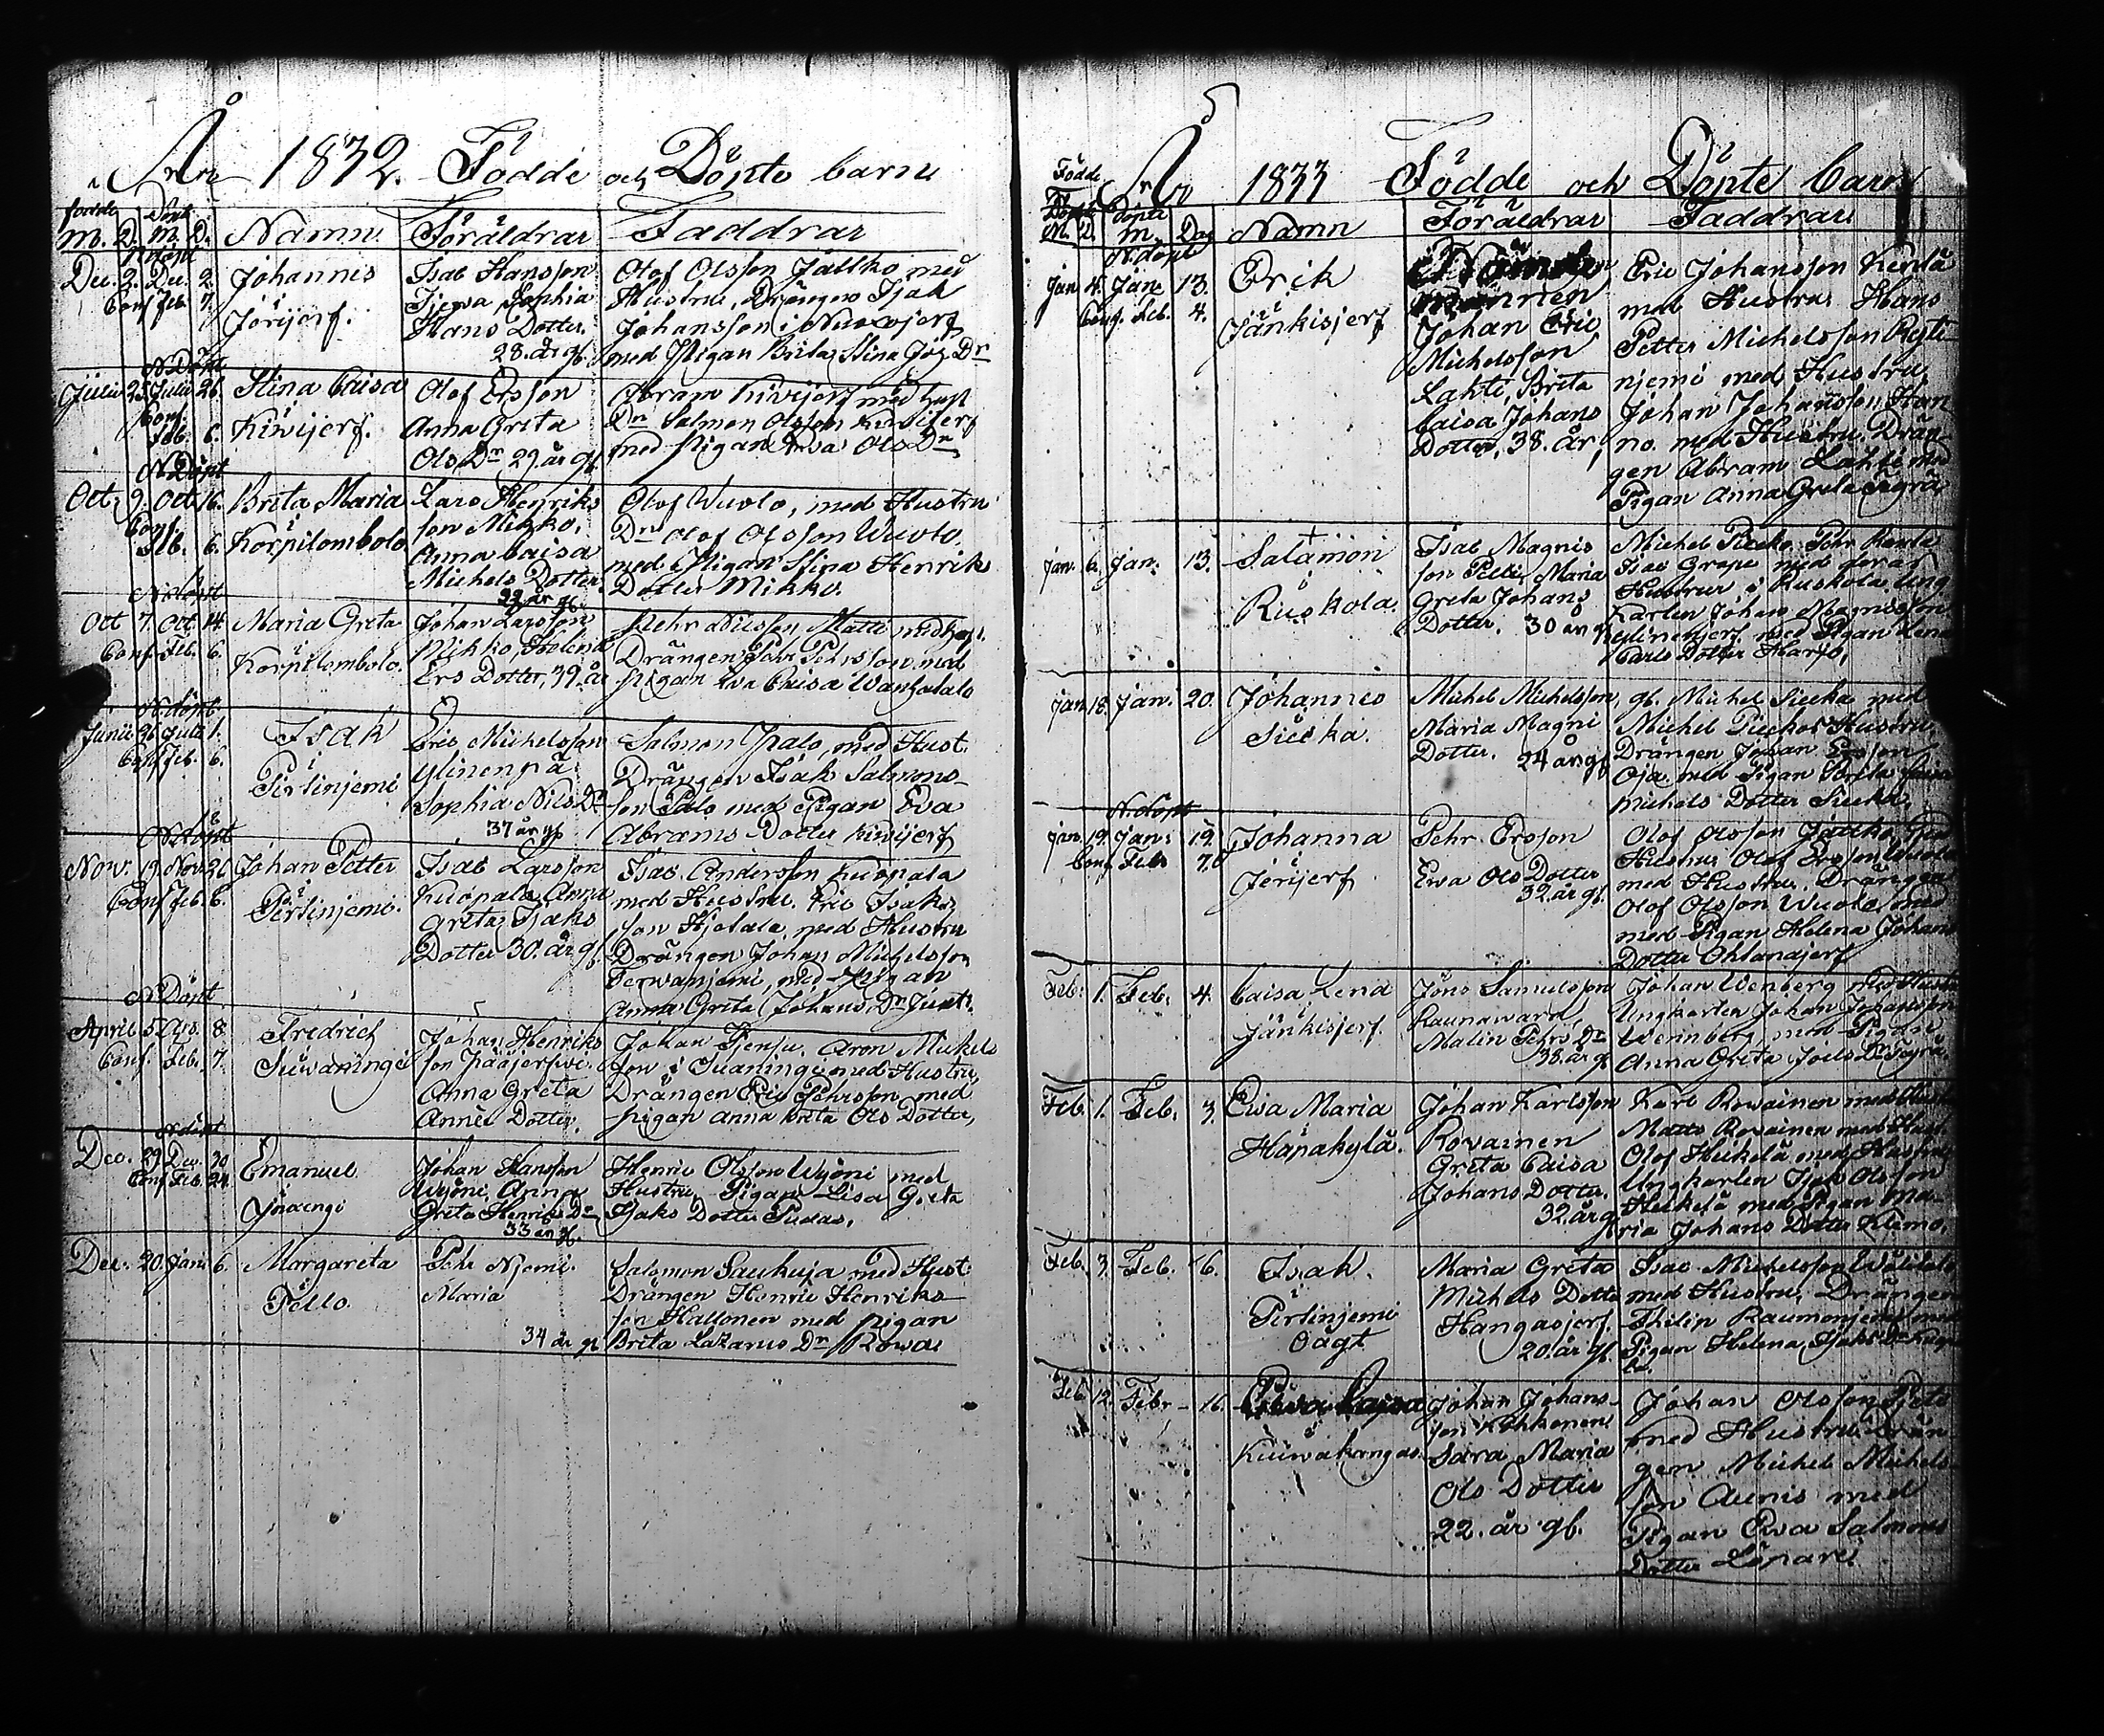 År 1832. Födde och Döpte barn
födde Döpt
M. D. M. D. Namn Föräldrar Faddrar
N.döpt
Dec. 2. Dec. 2. Johannis
Conf. Feb. 7.
Jerijerf.
Isac Hansson
Ewa Sophia
Hans Dotter.
28. år gl.
Olof Olsson Jatko med
Hustru, Drängen Isak
Johansson i
med Pigan Brita Stina Joh. Dr
N.Döpt
Julii 25. Julii 26. Stina Caisa
Conf.
Feb. 6. Kiwijerf.
Olof Ersson
Anna Greta
Ols Dr 29. år gl.
Abram Kiwijerf med Hust
Dr Salmon Olsson Kiwijerf
med Pigan Ewa Ols Dr
N.Döpt
Oct. 9. Oct. 16. Brita Maria
Conf.
Feb. 6. Korpilombolo
Lars Henriks
son Mikko.
Anna Caisa
Michels Dotter
22 år gl.
Olof Wuolo, med Hustru
Dr Olof Olsson Wuolo.
med Pigan Stina Henrik
Dotter Mikko.
N.döpt
Oct 7. Oct. 14. Maria Greta
Conf. Feb. 6.
Korpilombolo.
Johan Larsson
Mikko, Helena
Ers Dotter, 39. år
Pehr Nilsson Matti med Hust.
Drängen Pehr Pehrsson med
Pigan Ewa Caisa Wanhatalo
N.döpt
Junii 26. Julii 1. Isak
Conf. Feb. 6.
Pertinjemi
Eric Michelsson
Ylinenpä
Sophia Nils Dr
37 år gl.
Salmon Palo, med Hust.
Drängen Isak Salmons
son Palo med Pigan Ewa
Abrams Dotter Kiwijerf
N.döpt
Nov. 19. Nov. 26. Johan Petter
Conf. Feb. 6.
Pertinjemi.
Isac Larsson
Kuopala, Anna
Greta Isaks
Dotter 30. år gl.
Isac Andersson Kuopala
med Hustru. Eric Isaks
son Hjetala, med Hustru
Drängen Johan Michelsson
med Pigan
Anna Greta Johans Dr
N.Döpt
April 5. Apr. 8. Fredrich
Conf. Feb. 7.
Suwaningi
Johan Henriks
son Pääjerfwi.
Anna Greta
Anners Dotter.
Johan Aron Mickels
son i Suaningi med Hustru,
Drängen Eric Pehrsson med
Pigan Anna Greta Ols Dotter,
N.döpt
Dec. 29. Dec. 30. Emanuel
Conf. Feb. 24.
Johan Hansson
Wyöni, Anna
Greta Henriks Dr
33 år gl.
Henric Olsson Wyöni med
Hustru. Pigan Lisa Greta
Isaks Dotter Pudas.
Dec. 20. Jan. 6. Margareta
Pello.
Pehr Njemi.
Maria
34 år gl
Salomon Saukuja med Hust.
Drängen Henric Henriks
son Hallonen med Pigan
Brita Lazarus Dr Rowa
5
År 1833 Födde och Döpte barn
Födde
Döpte
M. D. M. Dag Namn Föräldrar Faddrar
N.döpt
Jan. 4. Jan. 13. Erik
Conf. Feb. 4.
Jänkisjerf
Johan Eric
Michelsson
Lahti, Brita
Caisa Johans
Dotter, 38. år,
Eric Johansson Kentä
med Hustru Hans
Petter Michelsson
njemi med Hustru
Johan Johansson Han
no. med Hustru Drän
gen Abram Lahti med
Pigan Anna Greta
Jan. 6. Jan. 13. Salamon
Ruskola.
Isac Magnis
son Pelli, Maria
Greta Johans
Dotter. 30 år gl
Michel Piecko Pehr
Isac Grape med deras
Hustrur i Ruskola. Ung
Karlen Johan Magnisson
Ylinenjerf med Pigan Lena
Carls Dotter Marjo,
Jan. 18. Jan. 20. Johannes
Siecka.
Michel Michelsson,
Maria Magni
Dotter. 24 år gl
gl. Michel Siecka med
Michel Pieckos Hustru
Drängen Johan Ersson
Oja med Pigan Brita Caisa
Michels Dotter Siecka.
N.döpt
Jan. 19. Jan. 19. Johanna
Conf. Feb. 7.
Jerijerf
Pehr Ersson
Ewa Ols Dotter
32. år gl.
Olof Olsson Jatko med
Hustru Olof Ersson Wuolo
med Hustru. Drängen
Olof Olsson Wuolo med
med Pigan Helena Johans
Dotter Ohtanajerf
Feb. 1. Feb. 4. Caisa Lena
Jänkisjerf.
Jöns Samulsson
Raunawara,
Malin Pehrs Dr
38. år gl
Johan Wenberg med Hustru
Ungkarlen Johan Johansson
Wennberg, med Pigan
Anna Greta Joels Dr
Feb. 1. Feb. 3. Ewa Maria
Hapakylä.
Johan Karlsson
Rovainen
Greta Caisa
Johans Dotter.
32. år gl
Karl Rowainen med Hustru
Matts Rovainen med Hust.
Olof Heikelä med Hustru
Ungkarlen Isak Olsson
Heikelä med Pigan Ma
ria Johans Dotter Klemo.
Feb. 3. Feb. 16. Isak.
Pertinjemi
Oägt
Maria Greta
Michels Dotter
Hangasjerf
20. år gl.
Isac Michelsson
med Hustru, Drängen
Philip Raumonjerf med
Pigan Helena Isaks Dr
Feb. 12. Febr. 16.
Kuiwakangas.
Johan Johans
son Kohkonen
Sara Maria
Ols Dotter
22. år gl.
Johan Olsson
med Hustru. Drän
gen Michel Michels
son Aunis med
Pigan Ewa Salmons
Dotter Löpare.